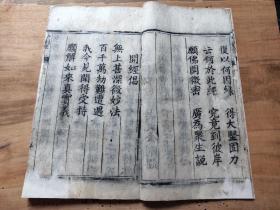 復以何因緣　得大堅固力
云何於此經　究竟到彼岸
願佛開微密　廣為眾生說
開經偈
無上甚深微妙法
百千萬劫難遭遇
我今見聞得受持
願解如來真實義